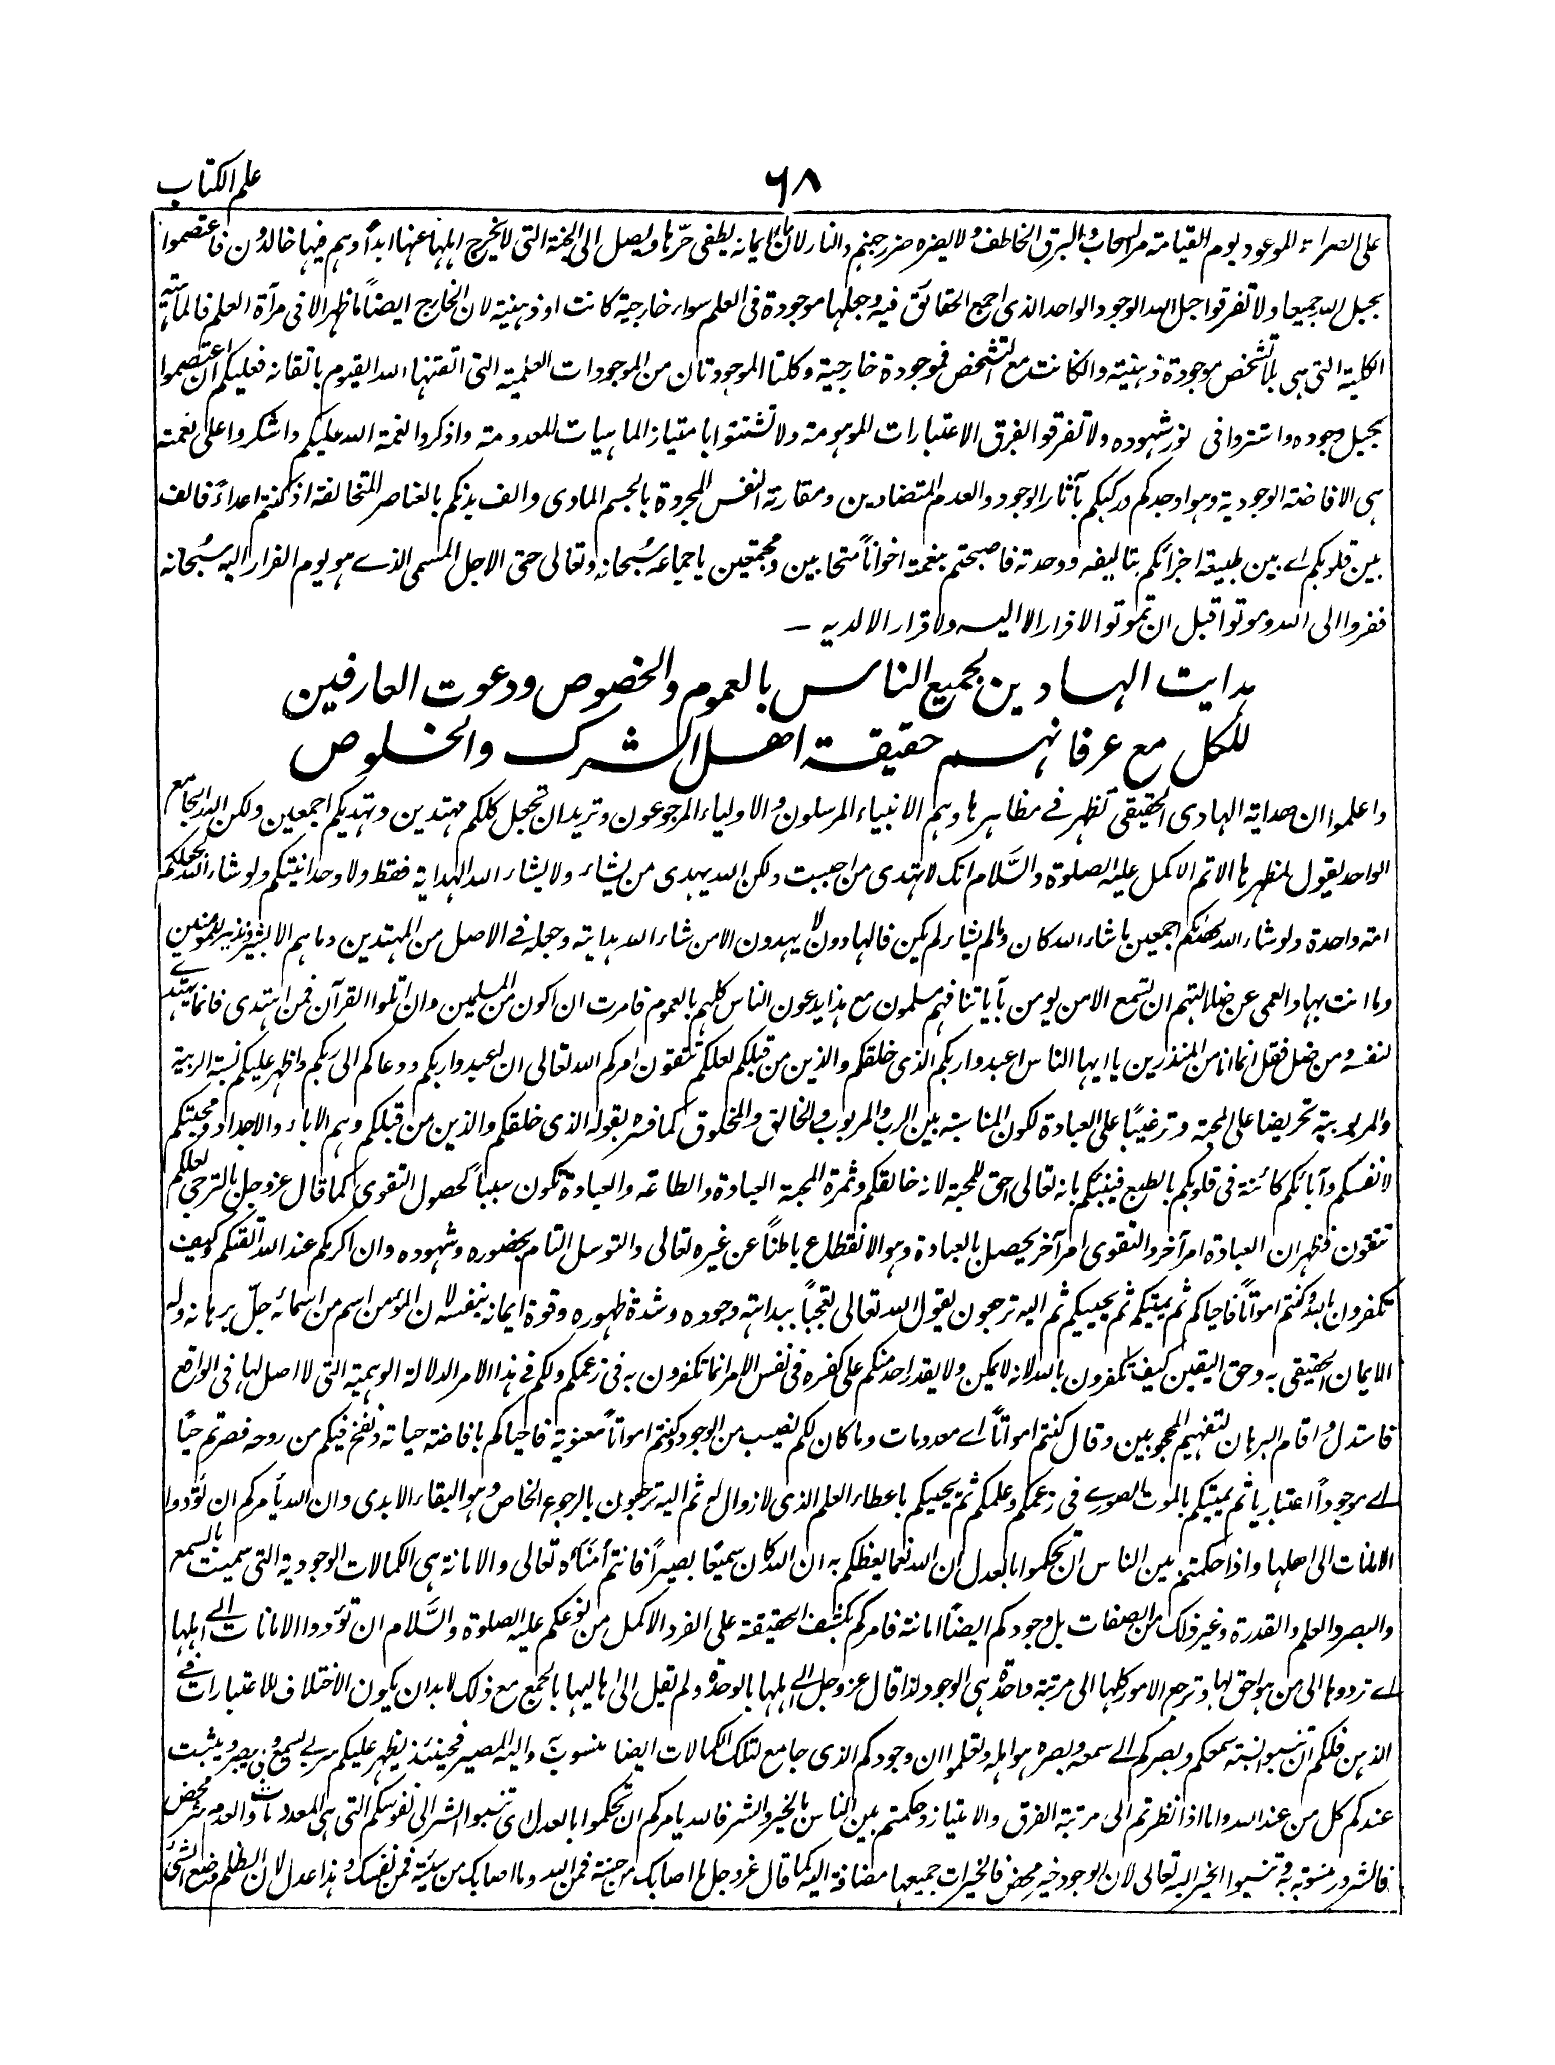 علم الکتاب
۶۸
على الصراط الموعود يوم القيامة مر السحاب والبرق الخاطف ولا يضره ضرر جهنم والنار لان ايمانه يطفى حرّها ويصل الى الجنة التى لا يخرج اهلها عنها ابداً وهم فيها خالدون فاعتصموا
بحبل الله جميعا ولا تفرقوا حبل الله الوجود الواحد الذى اجمع الحقائق فيه وجعلها موجودة فى العلم سواء خارجية كانت او ذهنية لان الخارج ايضاً ما ظهر الا فى مرآة العلم فالماهية
الكلية التى هى بلا تشخص موجودة ذهنية وان كانت مع التشخص فموجودة خارجية وكلتا الموجودتان من الموجودات العلمية التى اتقنها الله القيوم باتقانه فعليكم ان اعتصموا
بحبل وجوده واستتروا فى نور شهوده ولا تفرقوا بفرق الاعتبارات الموهومة ولا تشتتوا بامتياز الماهيات المعدومة واذكروا نعمة الله عليكم واشكروا على نعمته
هى الافاضة الوجودية وهو اوجدكم وركبكم بآثار الوجود والعدم المتضادين ومقارنة النفس المجردة بالجسم المادى والف بدنكم بالعناصر المتخالفة اذ كنتم اعداءً فالف
بين قلوبكم اے بين طبيعة اجزائكم بتاليفه ووحدته فاصبحتم بنعمته اخواناً متحابين ومجتمعين يا جماعه سُبحانه وتعالى حتى الاجل المسمى الذے هو يوم الفرار اليه سُبحانه
ففروا الى الله وموتوا قبل ان تموتوا لا فرار الا اليه ولا قرار الا لديه —
هدايت الهادين لجميع الناس بالعموم والخصوص ودعوت العارفين
للكل مع عرفانهم حقيقة اهل الشرك والخلوص
واعلموا ان هداية الهادى الحقيقى تظهر فے مظاهرها وهم الانبياء المرسلون والاولياء المرجوعون وتريد ان تجعل كلكم مهتدين وتهديكم اجمعين ولكن الله الجامع
الواحد يقول لمظهرها الاتم الاكمل عليه الصلوة والسَّلام انك لا تهدى من احببت ولكن الله يهدى من يشاء ولا يشاء الله الهداية فقط ولا وحدانيتكم ولو شاء الله لجعلكم
امة واحدة ولو شاء الله لهداكم اجمعين ما شاء الله كان وما لم يشاء لم يكن فالهادون لا يهدون الا من شاء الله هدايته وجعله فے الاصل من المهتدين وما هم الا بشير ونذير للمومنين
وما انت بهاد العمى عن ضلالتهم ان تسمع الا من يومن بآياتنا فهم مسلمون مع هذا يدعون الناس كلهم بالعموم فامرت ان اكون من المسلمين وان اتلوا القرآن فمن اهتدى فانما يهتدے
لنفسه ومن ضل فقل انما انا من المنذرين يا ايها الناس اعبدوا ربكم الذى خلقكم والذين من قبلكم لعلكم تتقون امركم الله تعالى ان تعبدوا ربكم ودعاكم الى ربكم واظهر عليكم نسبة الربية
والمربوبية تحريضا على المحبة وترغيبًا على العبادة لكون المناسبة بين الرب والمربوب والخالق والمخلوق كما فسره بقوله الذى خلقكم والذين من قبلكم وهم الاباء والاجداد ومحبتكم
لانفسكم وآبائكم كائنة فى قلوبكم بالطبع فينبئكم بانه تعالى احق للمحبة لانه خالقكم وثمرة المحبة العبادة والطاعة والعبادة تكون سبباً لحصول التقوى كما قال عز وجل بالترجى لعلكم
تتقون فظهر ان العبادة امر آخر والتقوى امر آخر يحصل بالعبادة وهو الانقطاع باطناً عن غيره تعالى والتوسل التام بحضوره وشهوده وان اكرمكم عند الله اتقكم وكيف
تكفرون بالله وكنتم امواتاً فاحياكم ثم يميتكم ثم يحييكم ثم اليه ترجعون يقول الله تعالى تعجباً ببداهته وجوده وشدة ظهوره وقوة ايمانه بنفسه لان المؤمن اسم من اسمائه جلّ برهانه وله
الايمان الحقيقى به وحق اليقين كيف تكفرون بالله لانه لا يمكن ولا يقدر احد منكم على كفره فى نفس الامر انما تكفرون به فى زعمكم ولكم فى هذا الامر الدلالة الوهمية التى لا اصل لها فى الواقع
فاستدل واقام البرهان لتفهيم المحجوبين وقال كنتم امواتاً اے معدومات وما كان لكم نصيب من الوجود وكنتم امواتاً معنوية فاحياكم بافاضة حياته ونفخ فيكم من روحه فصرتم حيًا
اے موجوداً اعتباريا ثم يميتكم بالموت الصورے فى زعمكم وعلمكم ثم يحييكم باعطاء العلم الذى لا زوال له ثم اليه ترجعون بالرجوع الخاص وهو البقاء الابدى وان الله يأمركم ان تؤدوا
الامانات الى اهلها واذا حكمتم بين الناس ان تحكموا بالعدل ان الله نعما يعظكم به ان الله كان سميعًا بصيراً فانتم أمناءه تعالى والامانة هى الكمالات الوجودية التى سميت بالسمع
والبصر والعلم والقدرة وغير ذلك من الصفات بل وجودكم ايضاً امانة فامركم بكشف الحقيقة على الفرد الاكمل من نوعكم عليه الصلوة والسَّلام ان تؤدوا الامانات الے اهلها
اے تردوها الى من هو احق لها وترجع الامور كلها الى مرتبة واحدة هى الوجود لذا قال عز وجل الے اهلها بالوحدة ولم يقل الى اهاليها بالجمع مع ذلك لابد ان يكون الاختلاف للاعتبارات فے
الذهن فلكم ان تنسبوا نسبة سمعكم وبصركم الے سمعه وبصره هو اهله وتعلموا ان وجودكم الذى جامع لتلك الكمالات ايضا منسوب واليه المصير فحينئذ يظهر عليكم سر بى يسمع وبى يبصر ويثبت
عندكم كل من عند الله واما اذا نظرتم الى مرتبة الفرق والامتياز وحكمتم بين الناس بالخير والشر فالله يامركم ان تحكموا بالعدل اى تنسبوا الشر الى نفوسكم التى هى المعدومات والعدم شر محض
فالشرور منسوبة به وتنسبوا الخير اليه تعالى لان الوجود خير محض فالخيرات جميعها مضافة اليه كما قال عز وجل ما اصابك من حسنة فمن الله وما اصابك من سيئة فمن نفسك وهذا عدل لان الظلم وضع الشئ